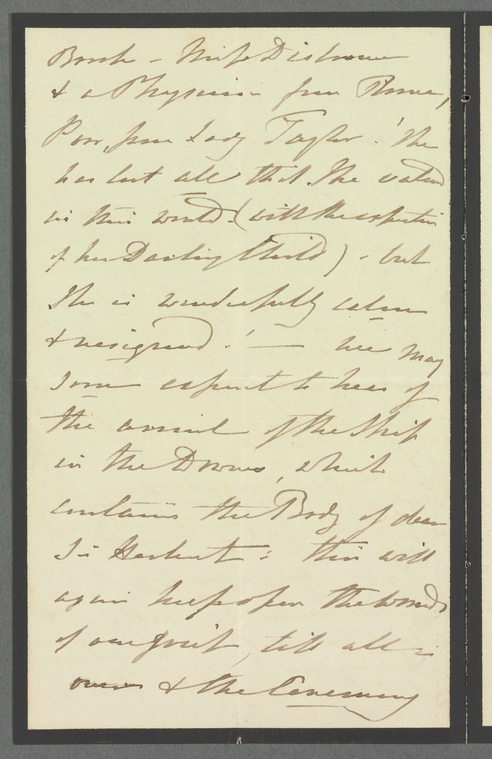 Brook - Miss Disbrowe
& a Physician from Rome,
Poor, poor Lady Taylor! She
has lost all that She valued
in this world (with the exception
of her Darling Child) - but
She is wonderfully calm
& resigned! - We may
soon expect to hear of
the arrival of the Ship
in the Downs, which
contains the Body of dear
Sir Herbert: this will
again keep open the wounds
of our grief, till all is
over & the Ceremony